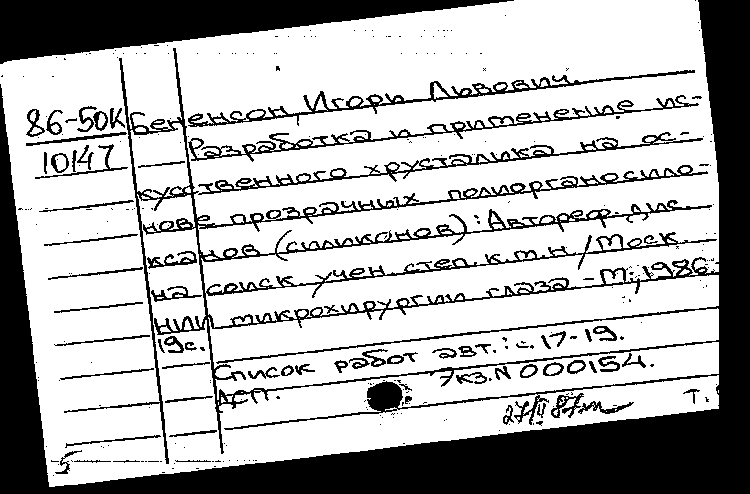 86-50К
10147
Бененсон, Игорь Львович.
Разработка и применение ис-
кусственного хрусталика на ос-
нове прозрачных полиорганосило-
ксанов (силиконов): Автореф. дис.
на соиск. учен. степ. к.т.н. / Моск.
НИИ микрохирургии глаза - М., 1986.
19с.
Список работ авт.: с. 17-19.
ДСП. Экз. N 000154.
27/II 87
Т.
5